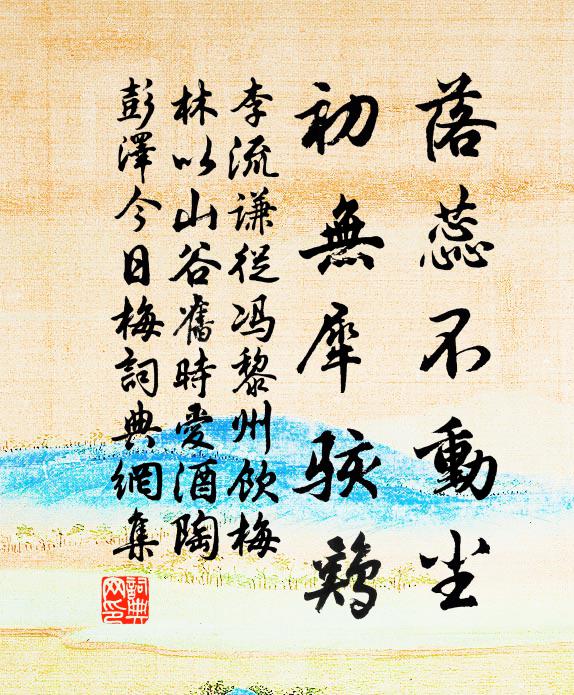 落蕊不動尘
初無犀駭鷄
李流谦從冯黎州飲梅
林以山谷舊時愛酒陶
彭澤今日梅詞典網集
詞典
网印